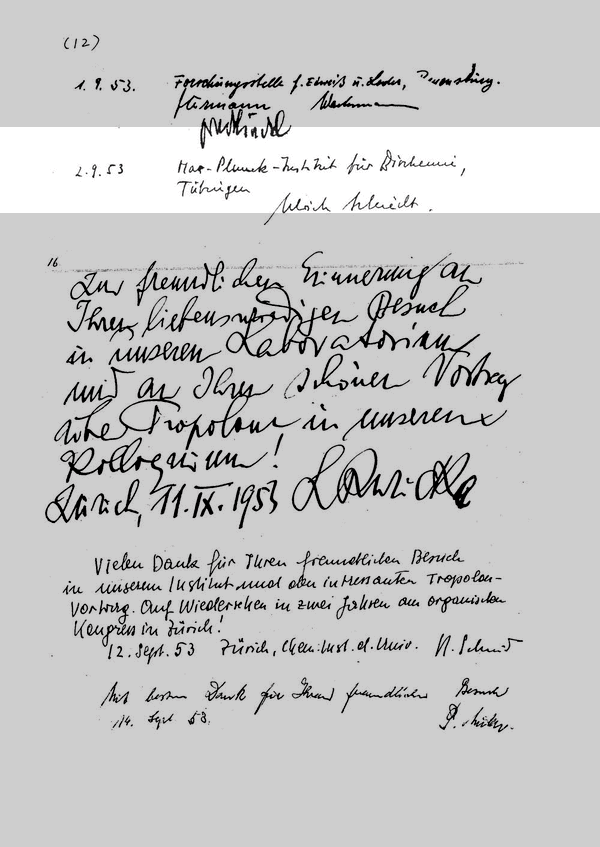 (12)
1. 9. 53. Forschungsstelle f. Eiweiß u. Leder, Regensburg.
Hermann
2.9.53 Max-Planck-Institut für Biochemie,
Tübingen
Ulrich Schmidt.
16
Zur freundlichen Erinnerung an
Ihren liebenswürdigen Besuch
in unserem Laboratorium
und an Ihren schönen Vortrag
über Tropolone in unserem
Kolloquium!
Zürich, 11.IX.1953 L Ruzicka
Vielen Dank für Ihren freundlichen Besuch
in unserem Institut und den interessanten Tropolon-
Vortrag. Auf Wiedersehen in zwei Jahren am organischen
Kongress in Zürich!
12. Sept. 53 Zürich, Chem. Inst. d. Univ. H. Schmid
Mit bestem Dank für Ihren freundlichen Besuch
14. Sept 53.